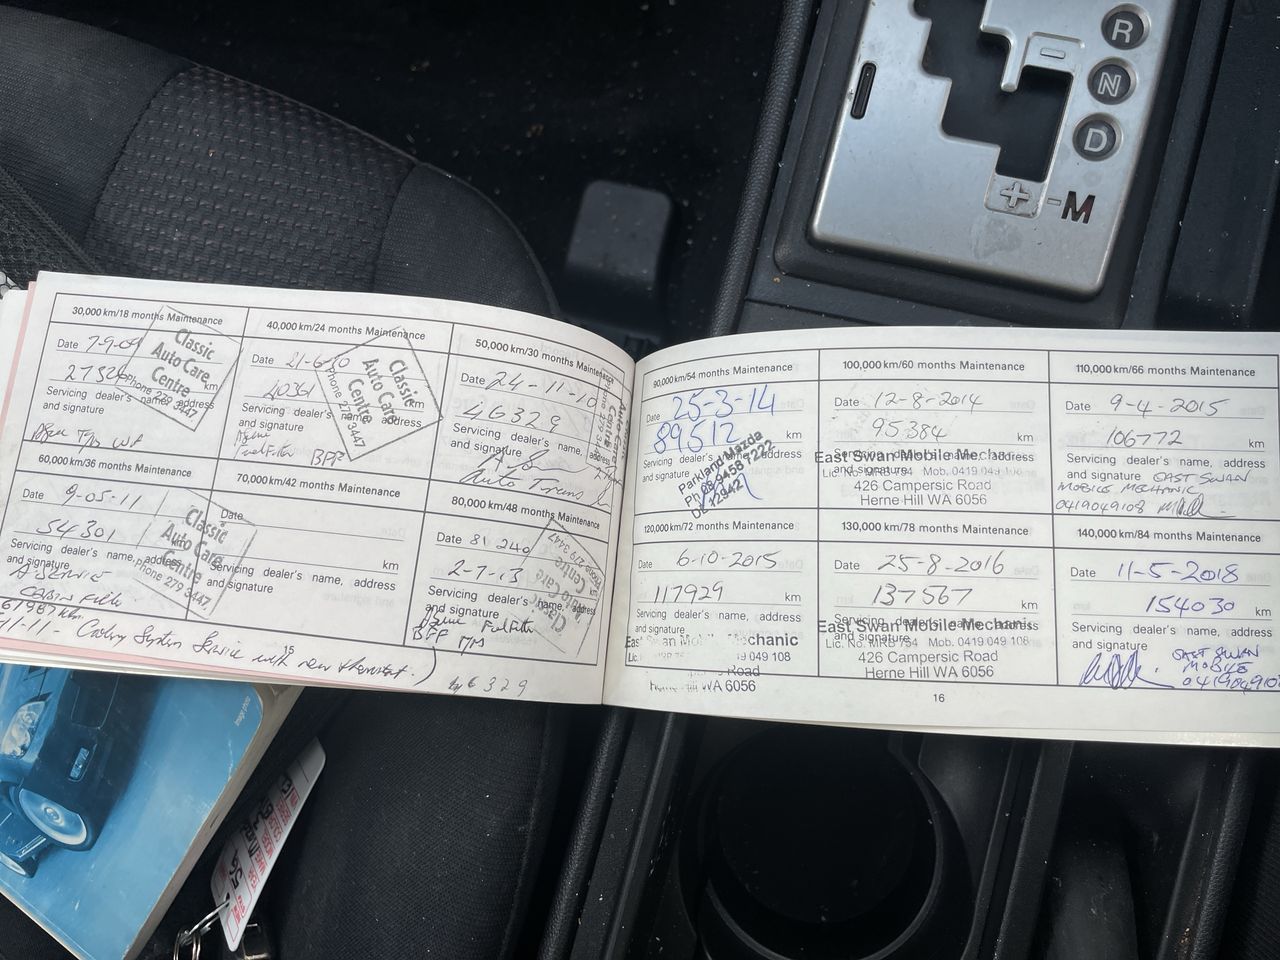 R
N
D
M
30,000 km/18 months Maintenance
Date 7-9-09
km
Servicing dealer's name, address
and signature
Classic
Auto Care
Centre
Phone 279 3447
40,000 km/24 months Maintenance
Date 21-6-10
40361 km
Servicing dealer's name, address
and signature
Fuel Filter BPP
Classic
Auto Care
Centre
Phone 279 3447
50,000 km/30 months Maintenance
Date 24-11-10
46329
Servicing dealer's name, address
and signature
Auto Trans
60,000 km/36 months Maintenance
Date 9-05-11
54301 km
Servicing dealer's name, address
and signature
A SERVICE
CABIN Filter
Classic
Auto Care
Centre
Phone 279 3447
70,000 km/42 months Maintenance
Date
km
Servicing dealer's name, address
and signature
80,000 km/48 months Maintenance
Date 81 240
2-7-13
Servicing dealer's name, address
and signature
Fuel Filter
BPP
Classic
Auto Care
Centre
Phone 279 3447
61987 km
11-11 - Cooling System Service with new thermostat.)
15
46329
90,000 km/54 months Maintenance
Date 25-3-14
89512 km
Servicing dealer's name, address
and signature
Parkland Mazda
Ph 08 9458 1222
100,000 km/60 months Maintenance
Date 12-8-2014
95384 km
Servicing dealer's name, address
and signature
East Swan Mobile Mechanic
Lic. No. MRB 754 Mob. 0419 049 108
426 Campersic Road
Herne Hill WA 6056
110,000 km/66 months Maintenance
Date 9-4-2015
106772 km
Servicing dealer's name, address
and signature EAST SWAN
MOBILE MECHANIC
0419049108
120,000 km/72 months Maintenance
Date 6-10-2015
117929 km
Servicing dealer's name, address
and signature
East Swan Mobile Mechanic
19 049 108
Road
WA 6056
130,000 km/78 months Maintenance
Date 25-8-2016
137567 km
Servicing dealer's name, address
and signature
East Swan Mobile Mechanic
Lic. No. MRB 754 Mob. 0419 049 108
426 Campersic Road
Herne Hill WA 6056
140,000 km/84 months Maintenance
Date 11-5-2018
154030 km
Servicing dealer's name, address
and signature
EAST SWAN
MOBILE
041904910
16